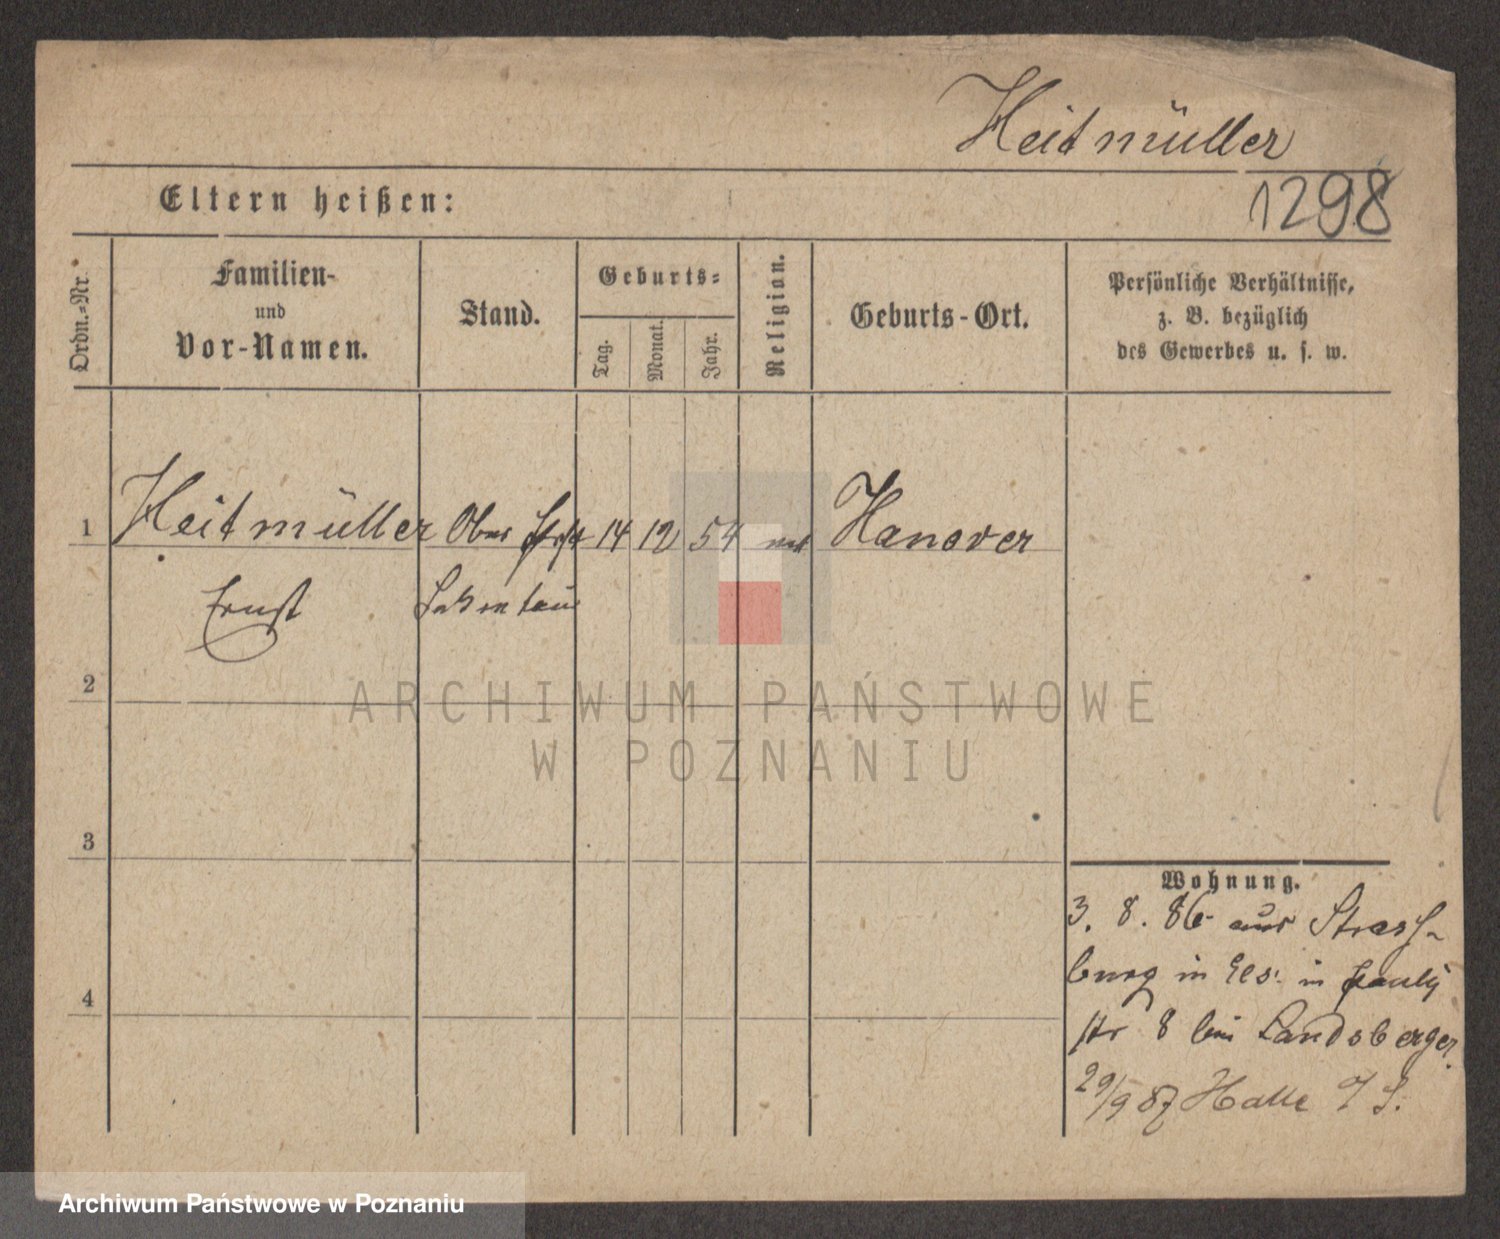 Heitmüller
1298
Eltern heißen:
Ordn.-Nr.
Familien-
und
Vor-Namen.
Stand.
Geburts-
Tag.
Monat.
Jahr.
Religion.
Geburts-Ort.
Persönliche Verhältnisse,
z. B. bezüglich
des Gewerbes u. s. w.
1 Heitmüller Ober 14 12 54 Hanover
Ernst Sekretair
2
ARCHIWUM PAŃSTWOWE
W POZNANIU
3
Wohnung.
3. 8. 86 aus Strass-
burg in Els. in Pauly
4
str 8 bei Landsberger.
29/9 87 Halle a/S.
Archiwum Państwowe w Poznaniu